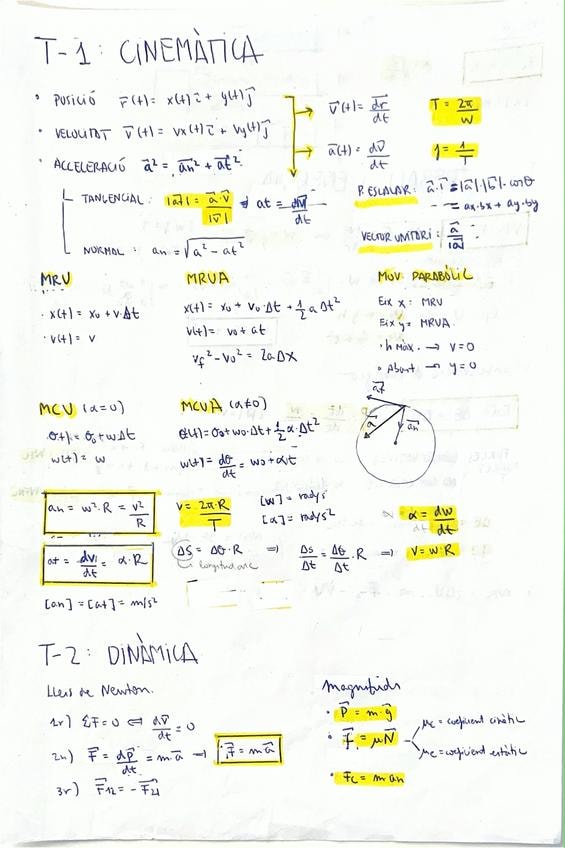 T-1: CINEMÀTICA
• POSICIÓ r⃗(t) = x(t)i⃗ + y(t)j⃗
• VELOCITAT v⃗(t) = vx(t)i⃗ + vy(t)j⃗
• ACCELERACIÓ a⃗² = a⃗n² + a⃗t²
TANGENCIAL: |a⃗t| = a⃗·v⃗ / |v⃗| ⇒ at = dv⃗/dt
NORMAL: an = √(a² - at²)
→ v⃗(t) = dr⃗/dt
→ a⃗(t) = dv⃗/dt
T = 2π/w
f = 1/T
P. ESCALAR: a⃗·b⃗ = |a⃗|·|b⃗|·cosθ
= ax·bx + ay·by
VECTOR UNITARI: a⃗/|a⃗|
MRV
· x(t) = x0 + v·Δt
· v(t) = v
MRUA
x(t) = x0 + v0·Δt + 1/2 a Δt²
v(t) = v0 + at
vf² - v0² = 2aΔx
MOV PARABÒLIC
Eix x: MRV
Eix y: MRUA
· h Màx. → v=0
• Abast → y=0
MCU (α=0)
θ(t) = θ0 + wΔt
w(t) = w
MCUA (α≠0)
θ(t) = θ0 + w0·Δt + 1/2 α·Δt²
w(t) = dθ/dt = w0 + αt
a⃗t
a⃗
a⃗n
an = w²·R = v²/R
v = 2π·R/T
[w] = rad/s
[α] = rad/s²
α = dw/dt
at = dv/dt = α·R
Δs = Δθ·R ⇒ Δs/Δt = Δθ/Δt · R ⇒ v = w·R
longitud arc
[an] = [at] = m/s²
T-2: DINÀMICA
Lleis de Newton.
1r) ΣF⃗ = 0 ⇔ dv⃗/dt = 0
2n) F⃗ = dp⃗/dt = m·a⃗ → F⃗ = m·a⃗
3r) F⃗12 = -F⃗21
Magnituds
• P⃗ = m·g⃗
• F⃗ = μN⃗
μc = coeficient cinètic
μe = coeficient estàtic
• Fc = m·an